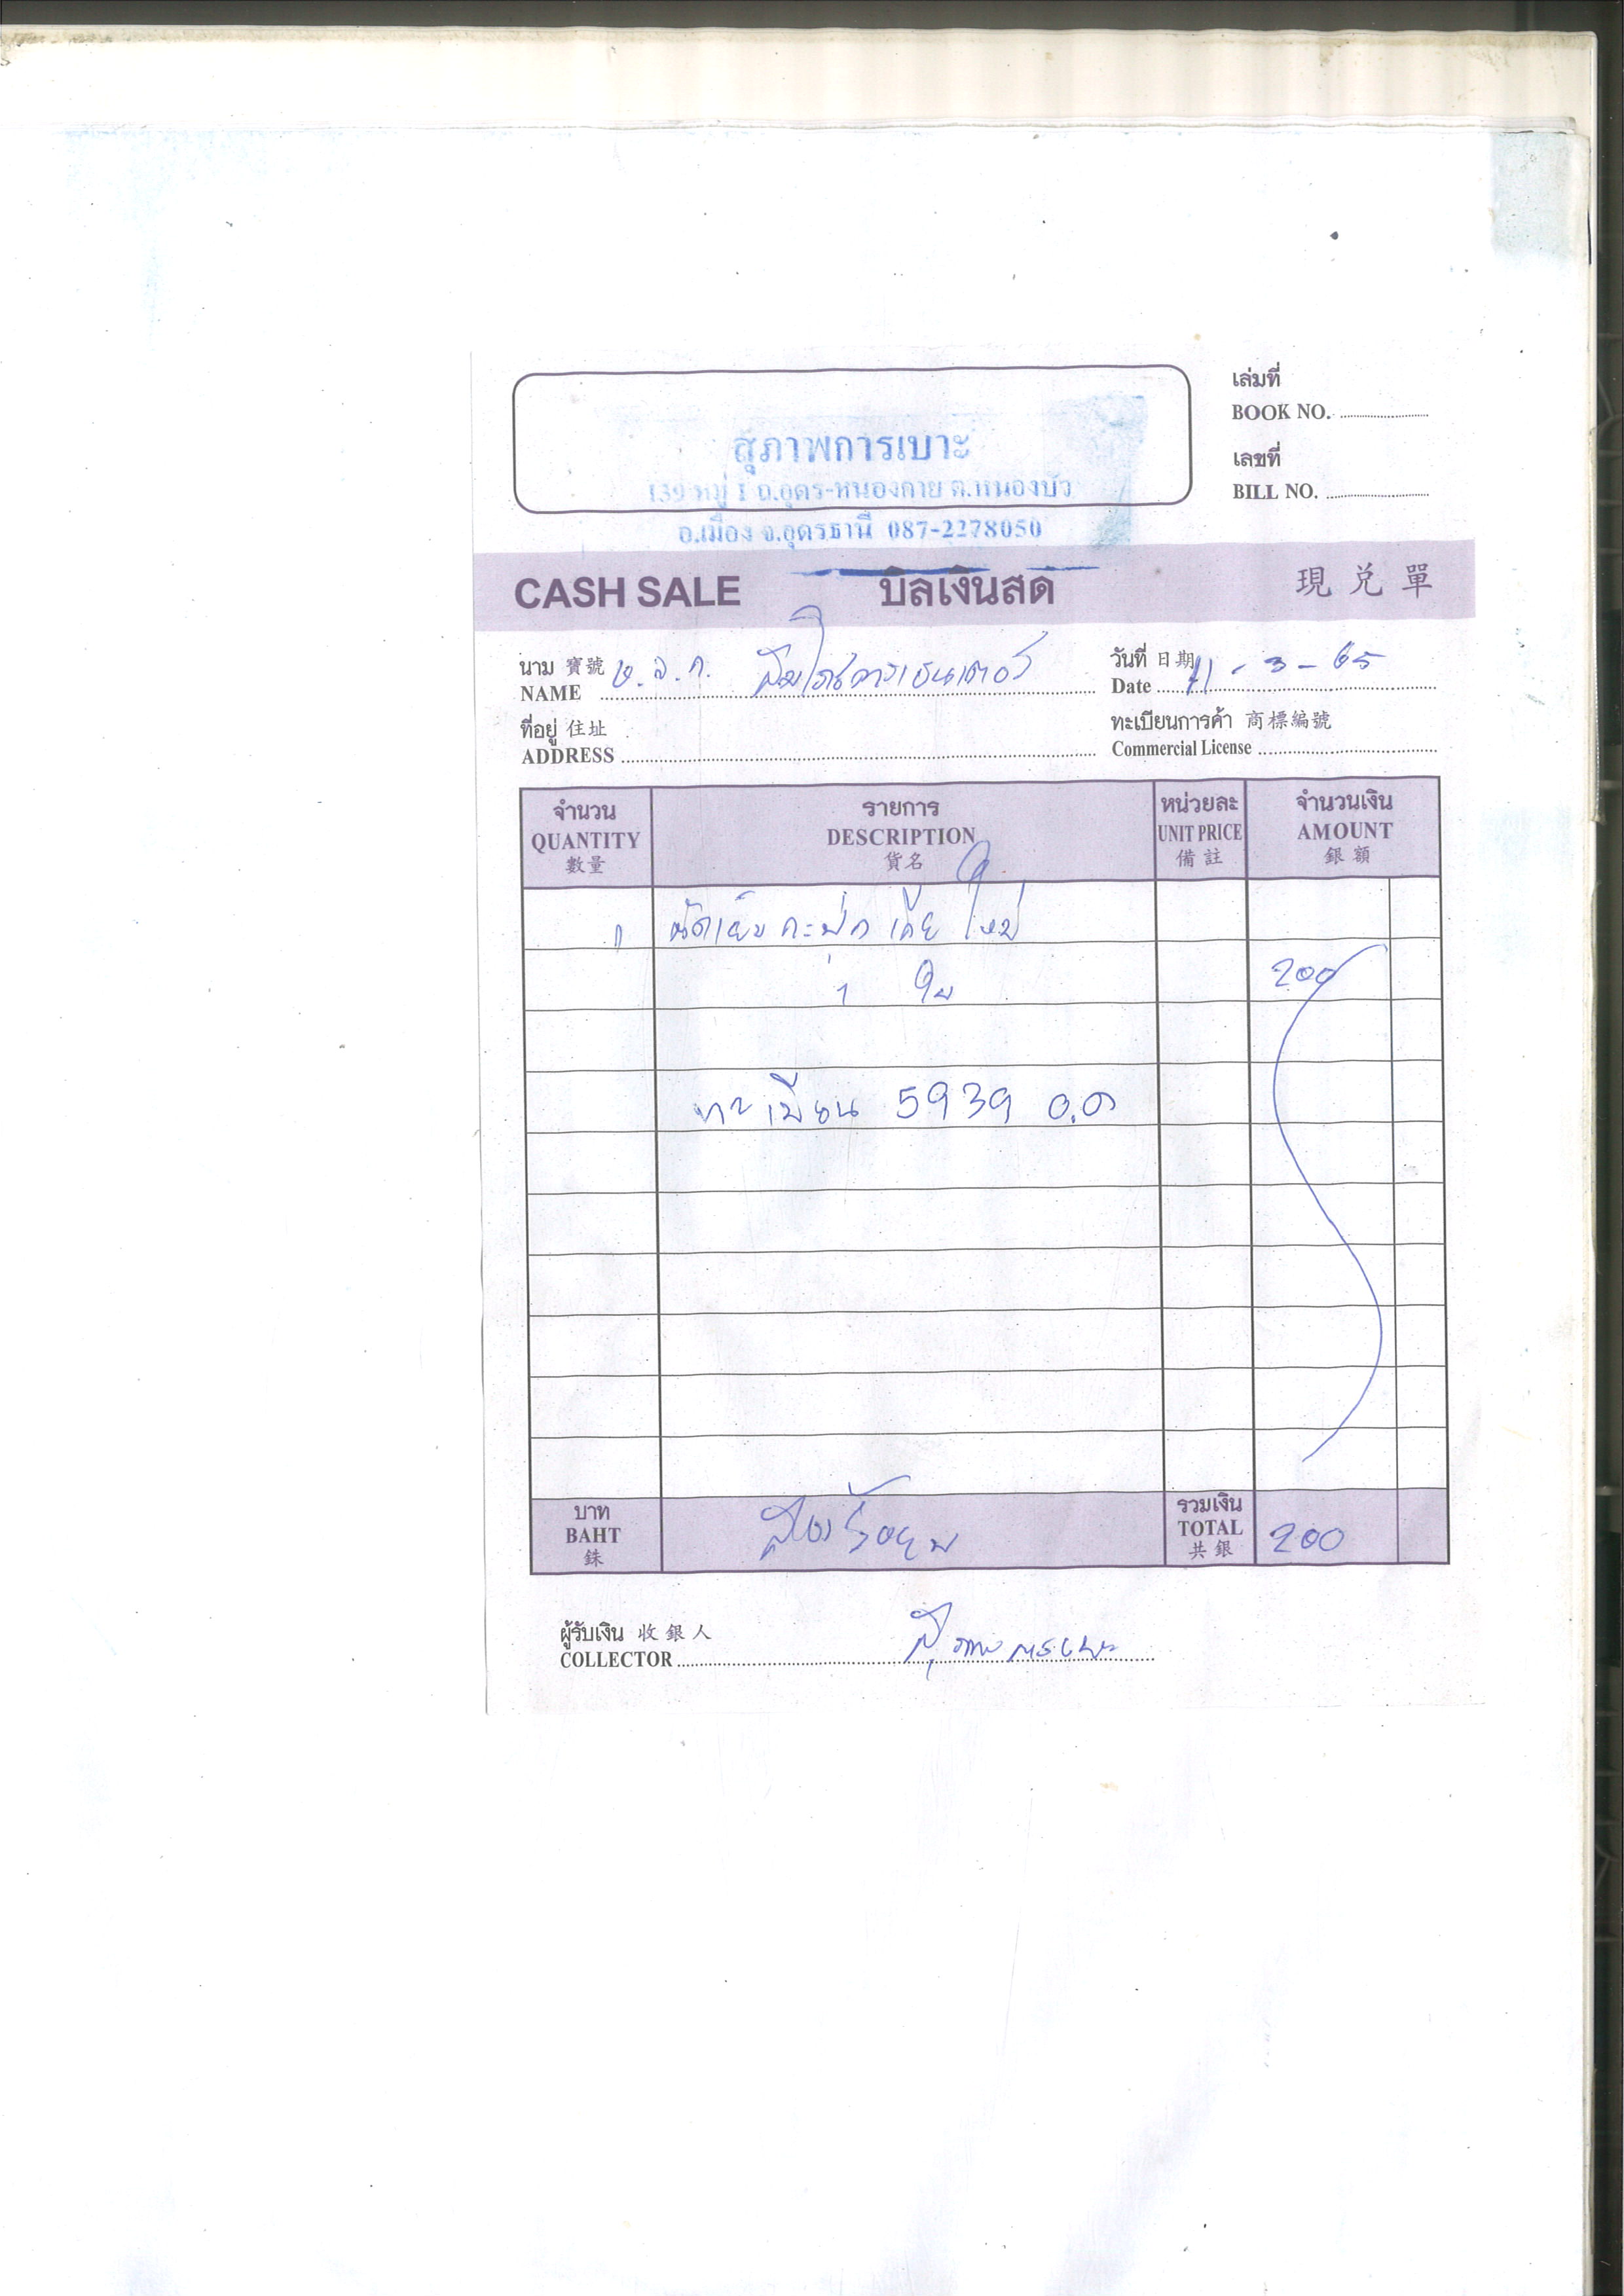 เล่มที่
BOOK NO.
สุภาพการเบาะ
139 หมู่ 1 ถ.อุดร-หนองคาย ต.หนองบัว
อ.เมือง จ.อุดรธานี 087-2278050
เลขที่
BILL NO.
CASH SALE บิลเงินสด 現兌單
นาม 寶號 วันที่ 日期
NAME Date 11-3-65
ที่อยู่ 住址 ทะเบียนการค้า 商標編號
ADDRESS Commercial License
จำนวน รายการ หน่วยละ จำนวนเงิน
QUANTITY DESCRIPTION UNIT PRICE AMOUNT
數量 貨名 備註 銀額
1 ใบ 200
ทะเบียน 5939 อ.ด
บาท รวมเงิน
BAHT สองร้อย TOTAL 200
銖 共銀
ผู้รับเงิน 收銀人
COLLECTOR สุภาพการเบาะ